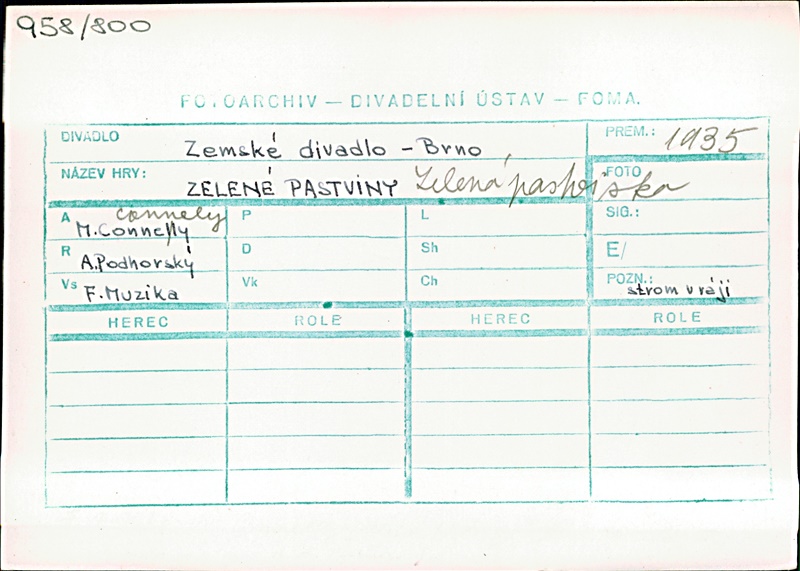 958/800
FOTOARCHIV — DIVADELNÍ ÚSTAV — FOMA.
DIVADLO Zemské divadlo – Brno PREM.: 1935
NÁZEV HRY: ZELENÉ PASTVINY Zelená pastviska FOTO
A connely P L SIG.:
M. Connelly
R A. Podhorský D Sh E/
Vs F. Muzika Vk Ch POZN.: strom v ráji
HEREC ROLE HEREC ROLE